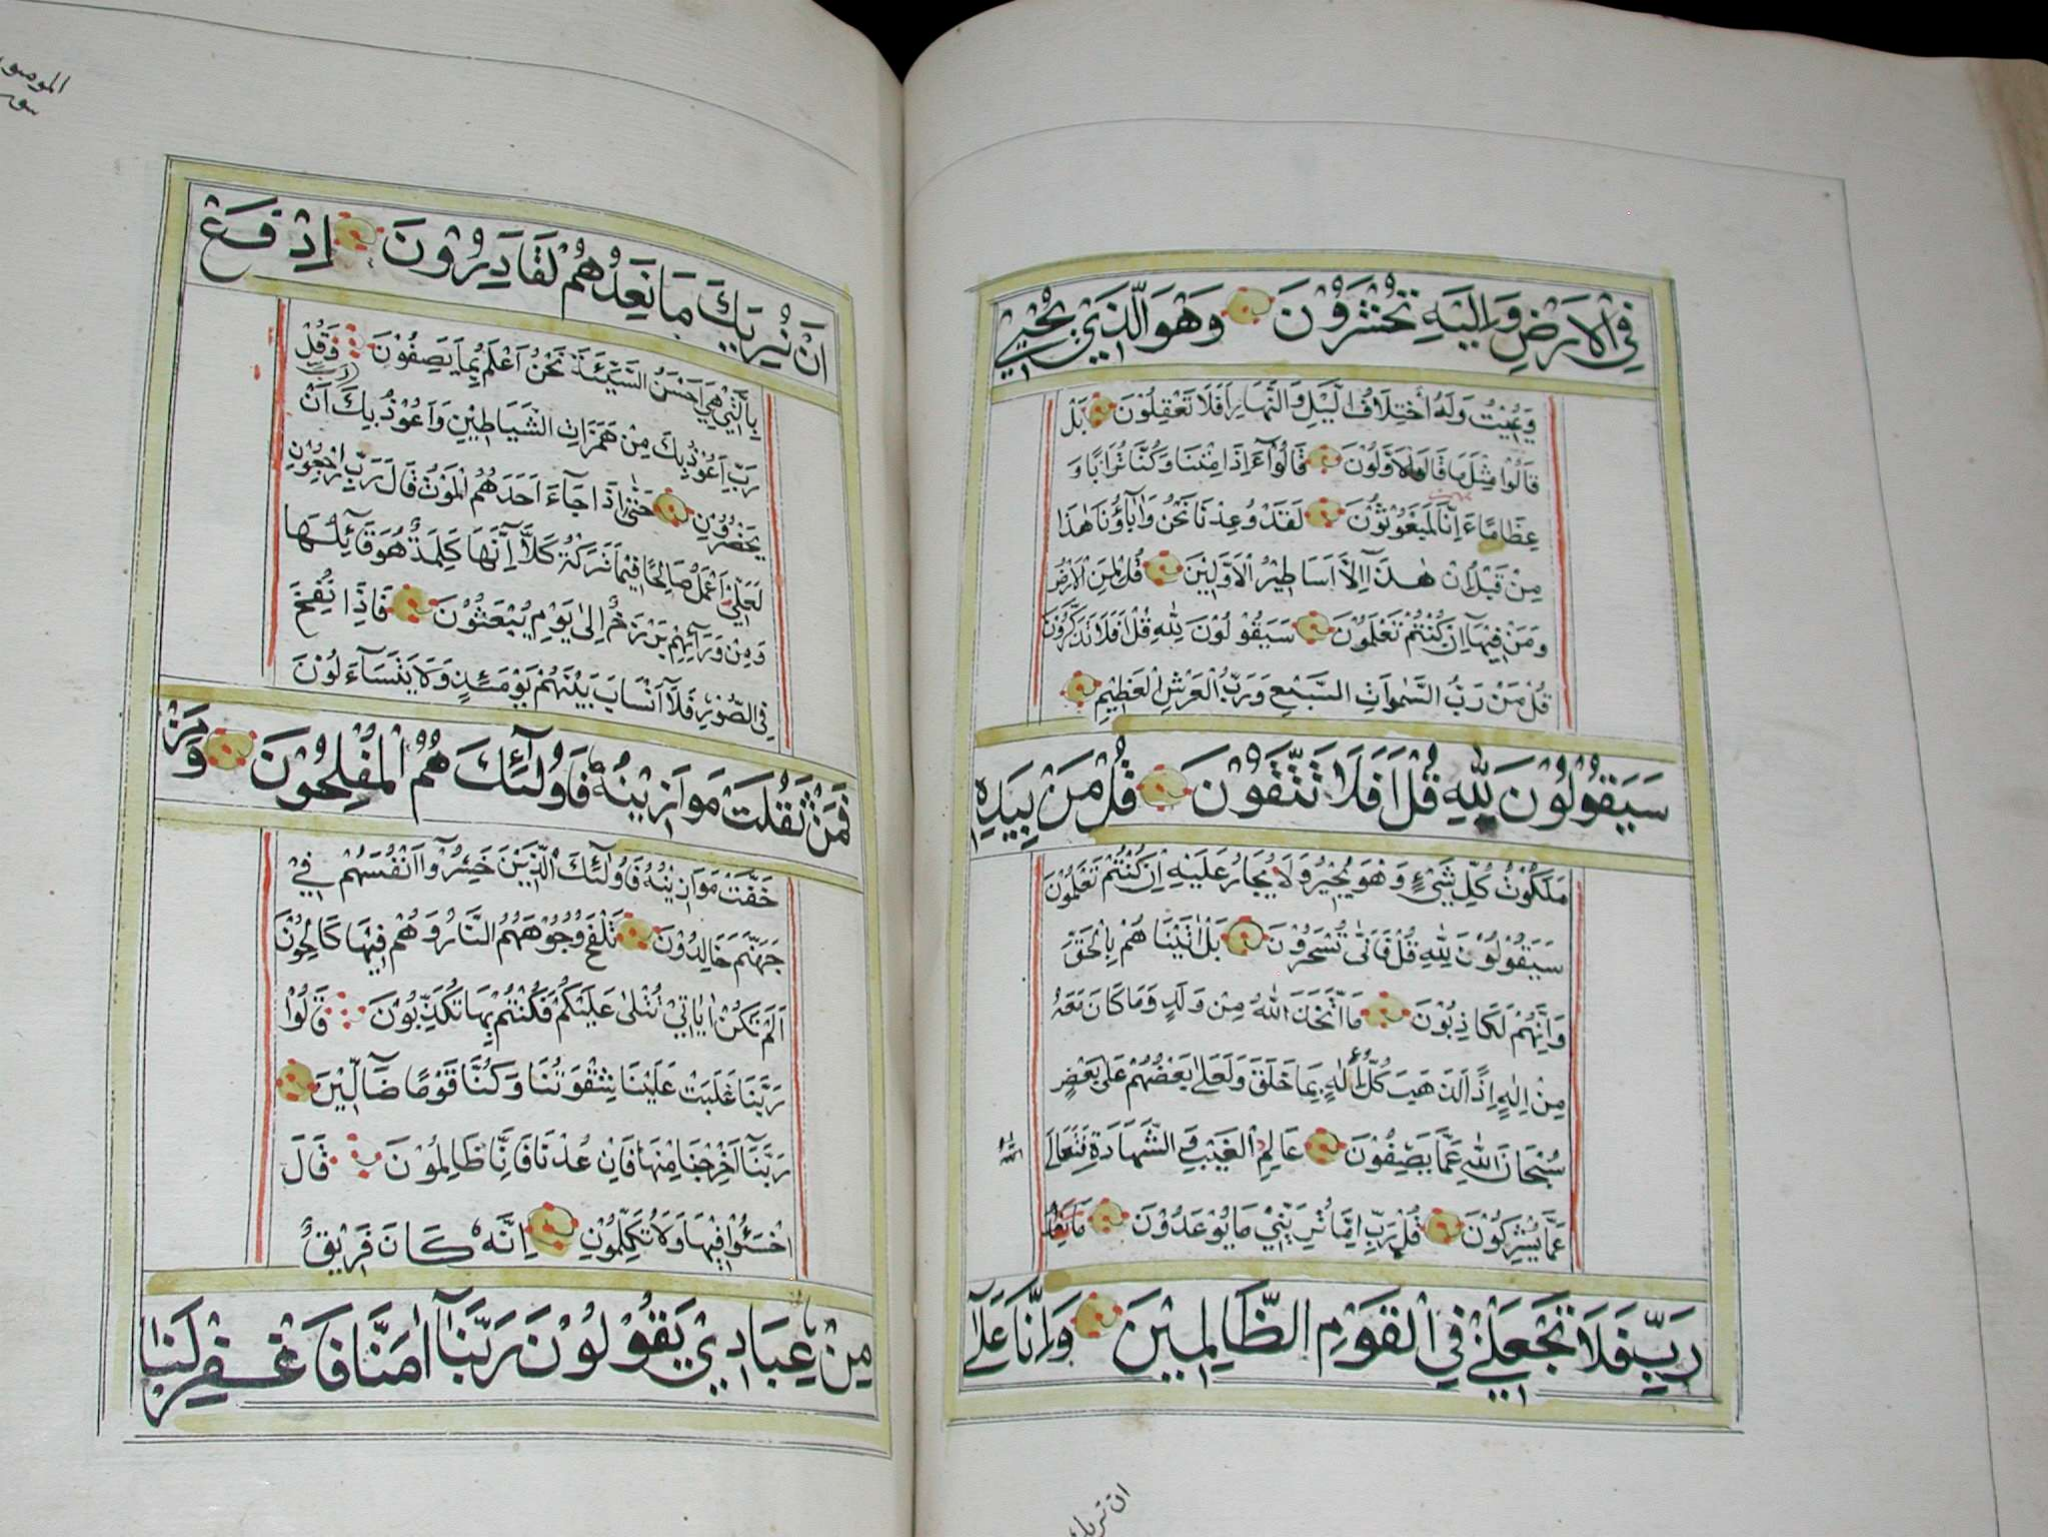 فِي الْاَرْضِ وَاِلَيْهِ تُحْشَرُوْنَ وَهُوَ الَّذِيْ يُحْيِيْ
وَيُمِيْتُ وَلَهُ اخْتِلَافُ الَّيْلِ وَالنَّهَارِ اَفَلَا تَعْقِلُوْنَ بَلْ
قَالُوا مِثْلَ مَا قَالَ الْاَوَّلُوْنَ قَالُوْا ءَاِذَا مِتْنَا وَكُنَّا تُرَابًا وَ
عِظَامًا ءَاِنَّا لَمَبْعُوْثُوْنَ لَقَدْ وُعِدْنَا نَحْنُ وَاٰبَآؤُنَا هٰذَا
مِنْ قَبْلُ اِنْ هٰذَآ اِلَّا اَسَاطِيْرُ الْاَوَّلِيْنَ قُلْ لِمَنِ الْاَرْضُ
وَمَنْ فِيْهَآ اِنْ كُنْتُمْ تَعْلَمُوْنَ سَيَقُوْلُوْنَ لِلّٰهِ قُلْ اَفَلَا تَذَكَّرُوْنَ
قُلْ مَنْ رَبُّ السَّمٰوَاتِ السَّبْعِ وَرَبُّ الْعَرْشِ الْعَظِيْمِ
سَيَقُوْلُوْنَ لِلّٰهِ قُلْ اَفَلَا تَتَّقُوْنَ قُلْ مَنْ بِيَدِهِ
مَلَكُوْتُ كُلِّ شَيْءٍ وَهُوَ يُجِيْرُ وَلَا يُجَارُ عَلَيْهِ اِنْ كُنْتُمْ تَعْلَمُوْنَ
سَيَقُوْلُوْنَ لِلّٰهِ قُلْ فَاَنّٰى تُسْحَرُوْنَ بَلْ اَتَيْنَاهُمْ بِالْحَقِّ
وَاِنَّهُمْ لَكَاذِبُوْنَ مَا اتَّخَذَ اللّٰهُ مِنْ وَلَدٍ وَمَا كَانَ مَعَهُ
مِنْ اِلٰهٍ اِذًا لَذَهَبَ كُلُّ اِلٰهٍ بِمَا خَلَقَ وَلَعَلَا بَعْضُهُمْ عَلٰى بَعْضٍ
سُبْحَانَ اللّٰهِ عَمَّا يَصِفُوْنَ عَالِمِ الْغَيْبِ وَالشَّهَادَةِ فَتَعَالٰى
عَمَّا يُشْرِكُوْنَ قُلْ رَبِّ اِمَّا تُرِيَنِّيْ مَا يُوْعَدُوْنَ
رَبِّ فَلَا تَجْعَلْنِيْ فِي الْقَوْمِ الظَّالِمِيْنَ وَاِنَّا عَلٰٓى
ان نريك
اَنْ نُرِيَكَ مَا نَعِدُهُمْ لَقَادِرُوْنَ اِدْفَعْ
بِالَّتِيْ هِيَ اَحْسَنُ السَّيِّئَةَ نَحْنُ اَعْلَمُ بِمَا يَصِفُوْنَ وَقُلْ
رَبِّ اَعُوْذُ بِكَ مِنْ هَمَزَاتِ الشَّيَاطِيْنِ وَاَعُوْذُ بِكَ اَنْ
يَحْضُرُوْنِ حَتّٰى اِذَا جَآءَ اَحَدَهُمُ الْمَوْتُ قَالَ رَبِّ ارْجِعُوْنِ
لَعَلِّيْ اَعْمَلُ صَالِحًا فِيْمَا تَرَكْتُ كَلَّا اِنَّهَا كَلِمَةٌ هُوَ قَآئِلُهَا
وَمِنْ وَرَآئِهِمْ بَرْزَخٌ اِلٰى يَوْمِ يُبْعَثُوْنَ فَاِذَا نُفِخَ
فِي الصُّوْرِ فَلَآ اَنْسَابَ بَيْنَهُمْ يَوْمَئِذٍ وَلَا يَتَسَآءَلُوْنَ
فَمَنْ ثَقُلَتْ مَوَازِيْنُهُ فَاُولٰٓئِكَ هُمُ الْمُفْلِحُوْنَ وَمَنْ
خَفَّتْ مَوَازِيْنُهُ فَاُولٰٓئِكَ الَّذِيْنَ خَسِرُوْٓا اَنْفُسَهُمْ فِيْ
جَهَنَّمَ خَالِدُوْنَ تَلْفَحُ وُجُوْهَهُمُ النَّارُ وَهُمْ فِيْهَا كَالِحُوْنَ
اَلَمْ تَكُنْ اٰيَاتِيْ تُتْلٰى عَلَيْكُمْ فَكُنْتُمْ بِهَا تُكَذِّبُوْنَ قَالُوْا
رَبَّنَا غَلَبَتْ عَلَيْنَا شِقْوَتُنَا وَكُنَّا قَوْمًا ضَآلِّيْنَ
رَبَّنَآ اَخْرِجْنَا مِنْهَا فَاِنْ عُدْنَا فَاِنَّا ظَالِمُوْنَ قَالَ
اخْسَئُوْا فِيْهَا وَلَا تُكَلِّمُوْنِ اِنَّهُ كَانَ فَرِيْقٌ
مِنْ عِبَادِيْ يَقُوْلُوْنَ رَبَّنَآ اٰمَنَّا فَاغْفِرْ لَنَا